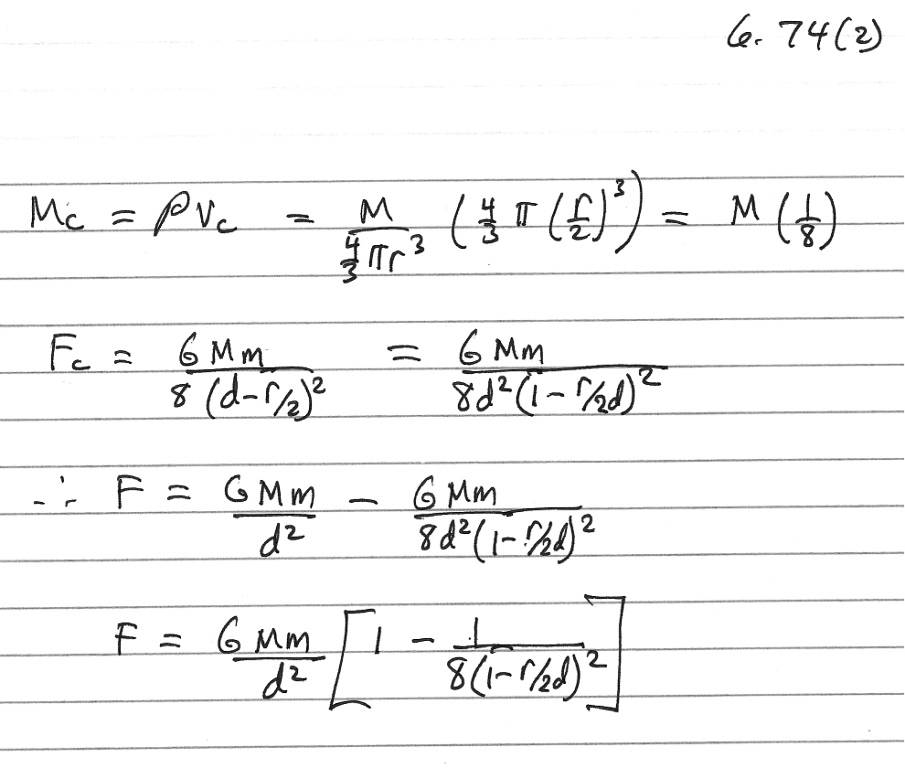 6. 74(2)
Mc = ρVc = M / (4/3 πr³) (4/3 π (r/2)³) = M (1/8)
Fc = GMm / 8(d-r/2)² = GMm / 8d²(1-r/2d)²
∴ F = GMm / d² - GMm / 8d²(1-r/2d)²
F = GMm / d² [1 - 1 / 8(1-r/2d)²]